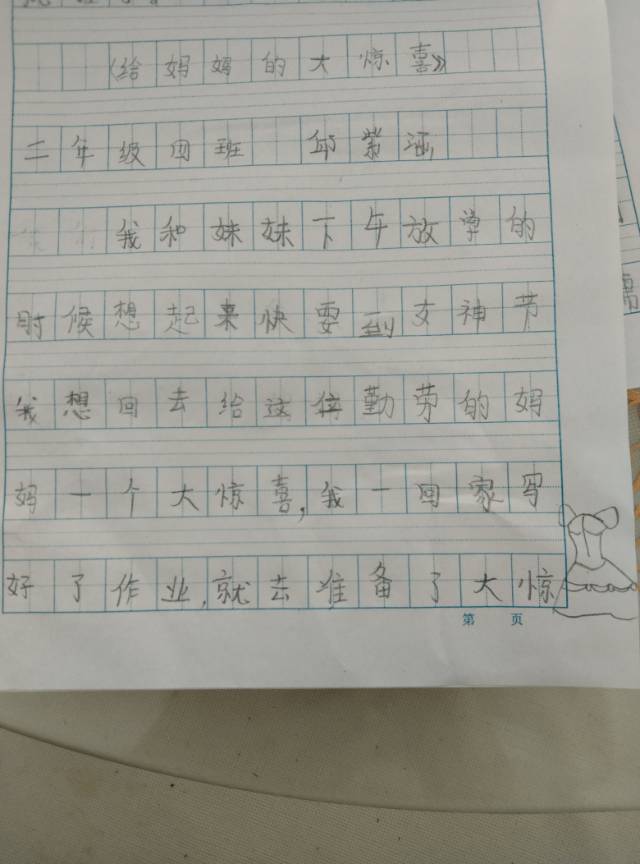 《给妈妈的大惊喜》
二年级四班 邱紫涵
我和妹妹下午放学的
时候想起来快要到女神节
我想回去给这位勤劳的妈
妈一个大惊喜,我一回家写
好了作业,就去准备了大惊
第 页